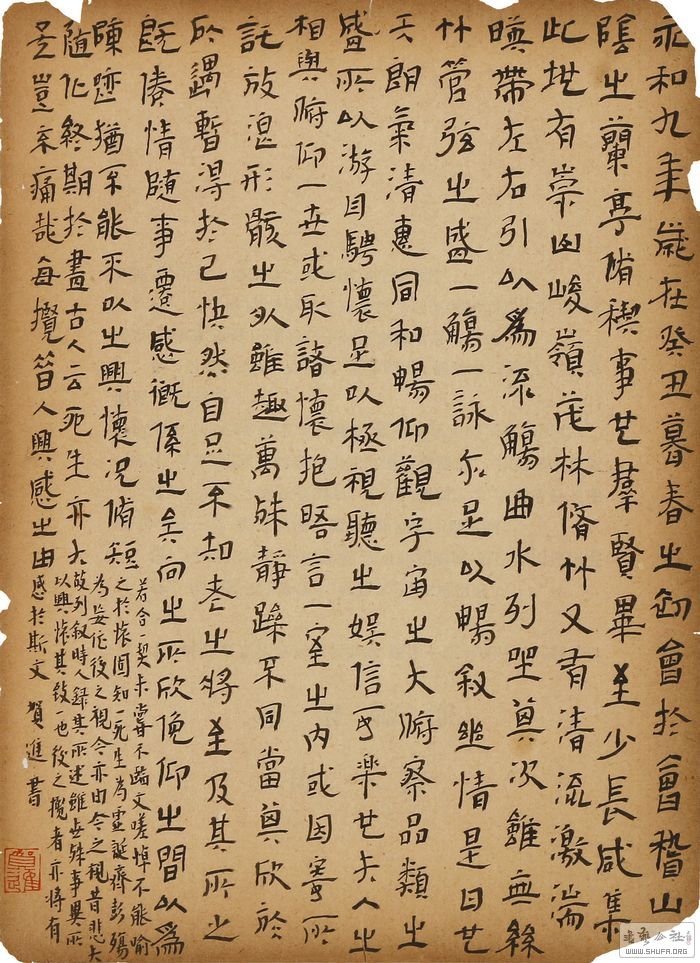 永和九年歲在癸丑暮春之初會於會稽山
陰之蘭亭脩稧事也羣賢畢至少長咸集
此地有崇山峻嶺茂林脩竹又有清流激湍
暎帶左右引以為流觴曲水列坐其次雖無絲
竹管弦之盛一觴一詠亦足以暢敘幽情是日也
天朗氣清惠風和暢仰觀宇宙之大俯察品類之
盛所以游目騁懷足以極視聽之娛信可樂也夫人之
相與俯仰一世或取諸懷抱晤言一室之內或因寄所
託放浪形骸之外雖趣萬殊靜躁不同當其欣於
所遇暫得於己快然自足不知老之將至及其所之
既倦情隨事遷感慨係之矣向之所欣俛仰之間以為
陳跡猶不能不以之興懷況脩短
隨化終期於盡古人云死生亦大
矣豈不痛哉每攬昔人興感之由
若合一契未嘗不臨文嗟悼不能喻
之於懷固知一死生為虛誕齊彭殤
為妄作後之視今亦由今之視昔悲夫
故列敘時人錄其所述雖世殊事異所
以興懷其致一也後之攬者亦將有
感於斯文 賀進書
WWW.SHUFA.ORG